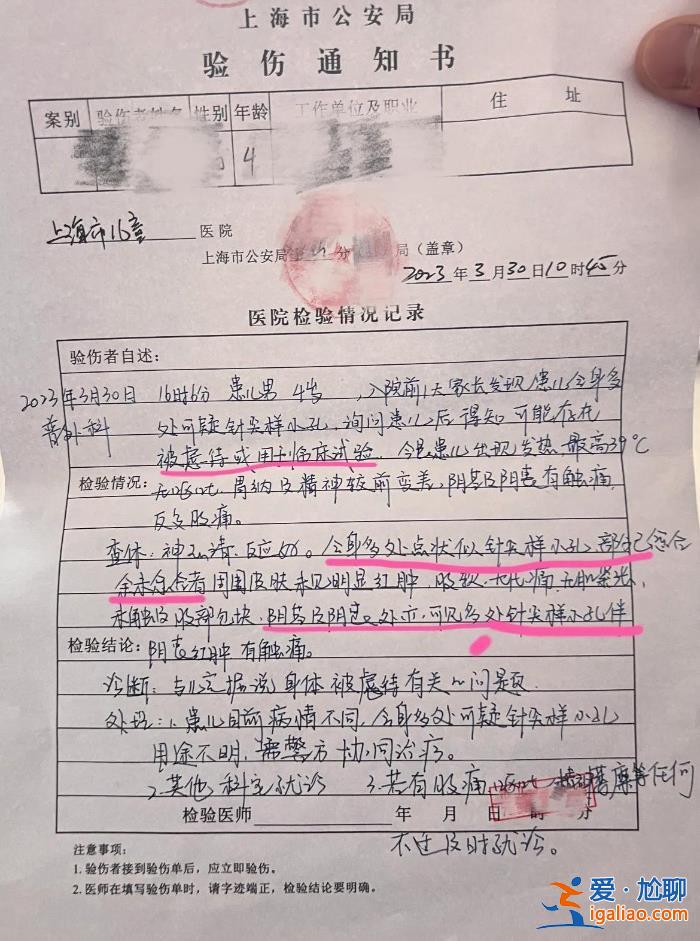 上海市公安局
验伤通知书
案别 验伤者姓名 性别 年龄 工作单位及职业 住址
4
上海市16童 医院
上海市公安局 分 局(盖章)
2023年3月30日10时45分
医院检验情况记录
验伤者自述:
2023年3月30日 16时6分 患儿男 4岁 ,入院前1天家长发现患儿全身多
普外科 处可疑针尖样小孔,询问患儿后得知可能存在
被虐待或用于临床试验 今患儿出现发热 最高39℃
检验情况: 无呕吐,胃纳及精神较前变差,阴茎及阴囊有触痛,
反复腹痛。
查体:神志清,反应好。全身多处点状似针尖样小孔 部分已愈合
余未愈合者 周围皮肤未见明显红肿 腹软
未触及腹部包块,阴茎及阴囊处亦可见多处针尖样小孔伴
检验结论: 阴囊红肿 有触痛。
诊断:与 据说身体被虐待有关的问题
处理:1.患儿目前病情不同,全身多处可疑针尖样小孔
用途不明,需警方协同治疗。
2.其他科室就诊 3.若有腹痛 呕吐 等任何
检验医师 年 月 日 时 分
不适及时就诊。
注意事项:
1.验伤者接到验伤单后,应立即验伤。
2.医师在填写验伤单时,请字迹端正,检验结论要明确。
爱·尬聊
igaliao.com